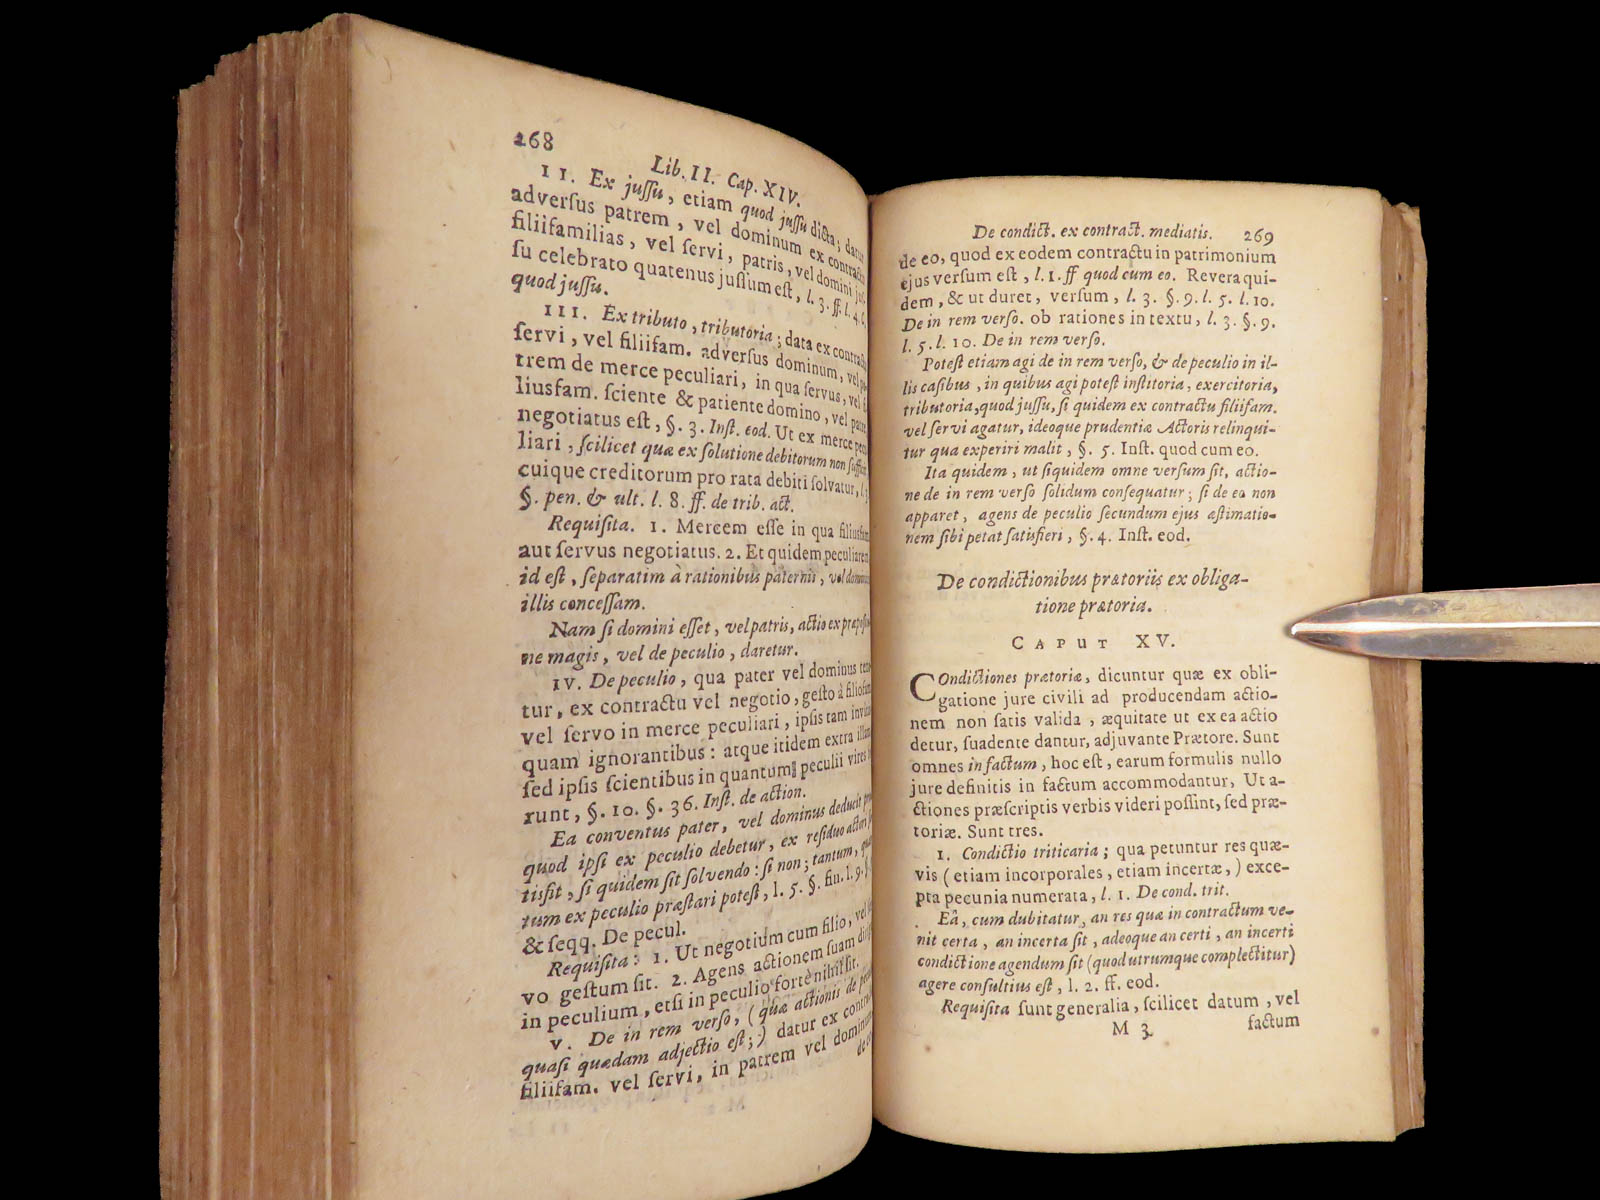 268
Lib. II. Cap. XIV.
II. Ex juſſu, etiam quod juſſu dicta; datur
adverſus patrem, vel dominum ex contractu
filiifamilias, vel ſervi, patris, vel domini juſ-
ſu celebrato quatenus juſſum eſt, l. 3. ff. l. 4. 6.
quod juſſu.
III. Ex tributo, tributoria; data ex contractu
ſervi, vel filiifam. adverſus dominum, vel pa-
trem de merce peculiari, in qua ſervus, vel fi-
liusfam. ſciente & patiente domino, vel patre
negotiatus eſt, §. 3. Inſt. eod. Ut ex merce pecu-
liari, ſcilicet quæ ex ſolutione debitorum non ſufficit
cuique creditorum pro rata debiti ſolvatur, l.
§. pen. & ult. l. 8. ff. de trib. act.
Requiſita. 1. Mercem eſſe in qua filiusfam.
aut ſervus negotiatus. 2. Et quidem peculiarem
id eſt, ſeparatim à rationibus paternis, vel domini
illis conceſſam.
Nam ſi domini eſſet, vel patris, actio ex præpoſitio-
ne magis, vel de peculio, daretur.
IV. De peculio, qua pater vel dominus tene-
tur, ex contractu vel negotio, geſto à filiofam.
vel ſervo in merce peculiari, ipſis tam invitis
quam ignorantibus: atque itidem extra illam
ſed ipſis ſcientibus in quantum peculii vires
runt, §. 10. §. 36. Inſt. de action.
Ea conventus pater, vel dominus deducit
quod ipſi ex peculio debetur, ex reſiduo actori
tisfit, ſi quidem ſit ſolvendo: ſi non; tantum,
tum ex peculio præſtari poteſt, l. 5. §. fin. l. 9.
& ſeqq. De pecul.
Requiſita: 1. Ut negotium cum filio, vel ſer-
vo geſtum ſit. 2. Agens actionem ſuam
in peculium, etſi in peculio forte nihil ſit.
V. De in rem verſo, (quæ actionis de peculio
quaſi quædam adjectio eſt;) datur ex contractu
filiifam. vel ſervi, in patrem vel dominum
de eo
De condict. ex contract. mediatis. 269
de eo, quod ex eodem contractu in patrimonium
ejus verſum eſt, l. 1. ff quod cum eo. Revera qui-
dem, & ut duret, verſum, l. 3. §. 9. l. 5. l. 10.
De in rem verſo. ob rationes in textu, l. 3. §. 9.
l. 5. l. 10. De in rem verſo.
Poteſt etiam agi de in rem verſo, & de peculio in il-
lis caſibus, in quibus agi poteſt inſtitoria, exercitoria,
tributoria, quod juſſu, ſi quidem ex contractu filiifam.
vel ſervi agatur, ideoque prudentiæ Actoris relinqui-
tur qua experiri malit, §. 5. Inſt. quod cum eo.
Ita quidem, ut ſiquidem omne verſum ſit, actio-
ne de in rem verſo ſolidum conſequatur; ſi de ea non
apparet, agens de peculio ſecundum ejus æſtimatio-
nem ſibi petat ſatisfieri, §. 4. Inſt. eod.
De condictionibus prætoriis ex obliga-
tione prætoria.
CAPUT XV.
COndictiones prætoriæ, dicuntur quæ ex obli-
gatione jure civili ad producendam actio-
nem non ſatis valida, æquitate ut ex ea actio
detur, ſuadente dantur, adjuvante Prætore. Sunt
omnes in factum, hoc eſt, earum formulis nullo
jure definitis in factum accommodantur, Ut a-
ctiones præſcriptis verbis videri poſſint, ſed præ-
toriæ. Sunt tres.
1. Condictio triticaria; qua petuntur res quæ-
vis (etiam incorporales, etiam incertæ,) exce-
pta pecunia numerata, l. 1. De cond. trit.
Eâ, cum dubitatur, an res quæ in contractum ve-
nit certa, an incerta ſit, adeoque an certi, an incerti
condictione agendum ſit (quod utrumque complectitur)
agere conſultius eſt, l. 2. ff. eod.
Requiſita ſunt generalia, ſcilicet datum, vel
M 3
factum